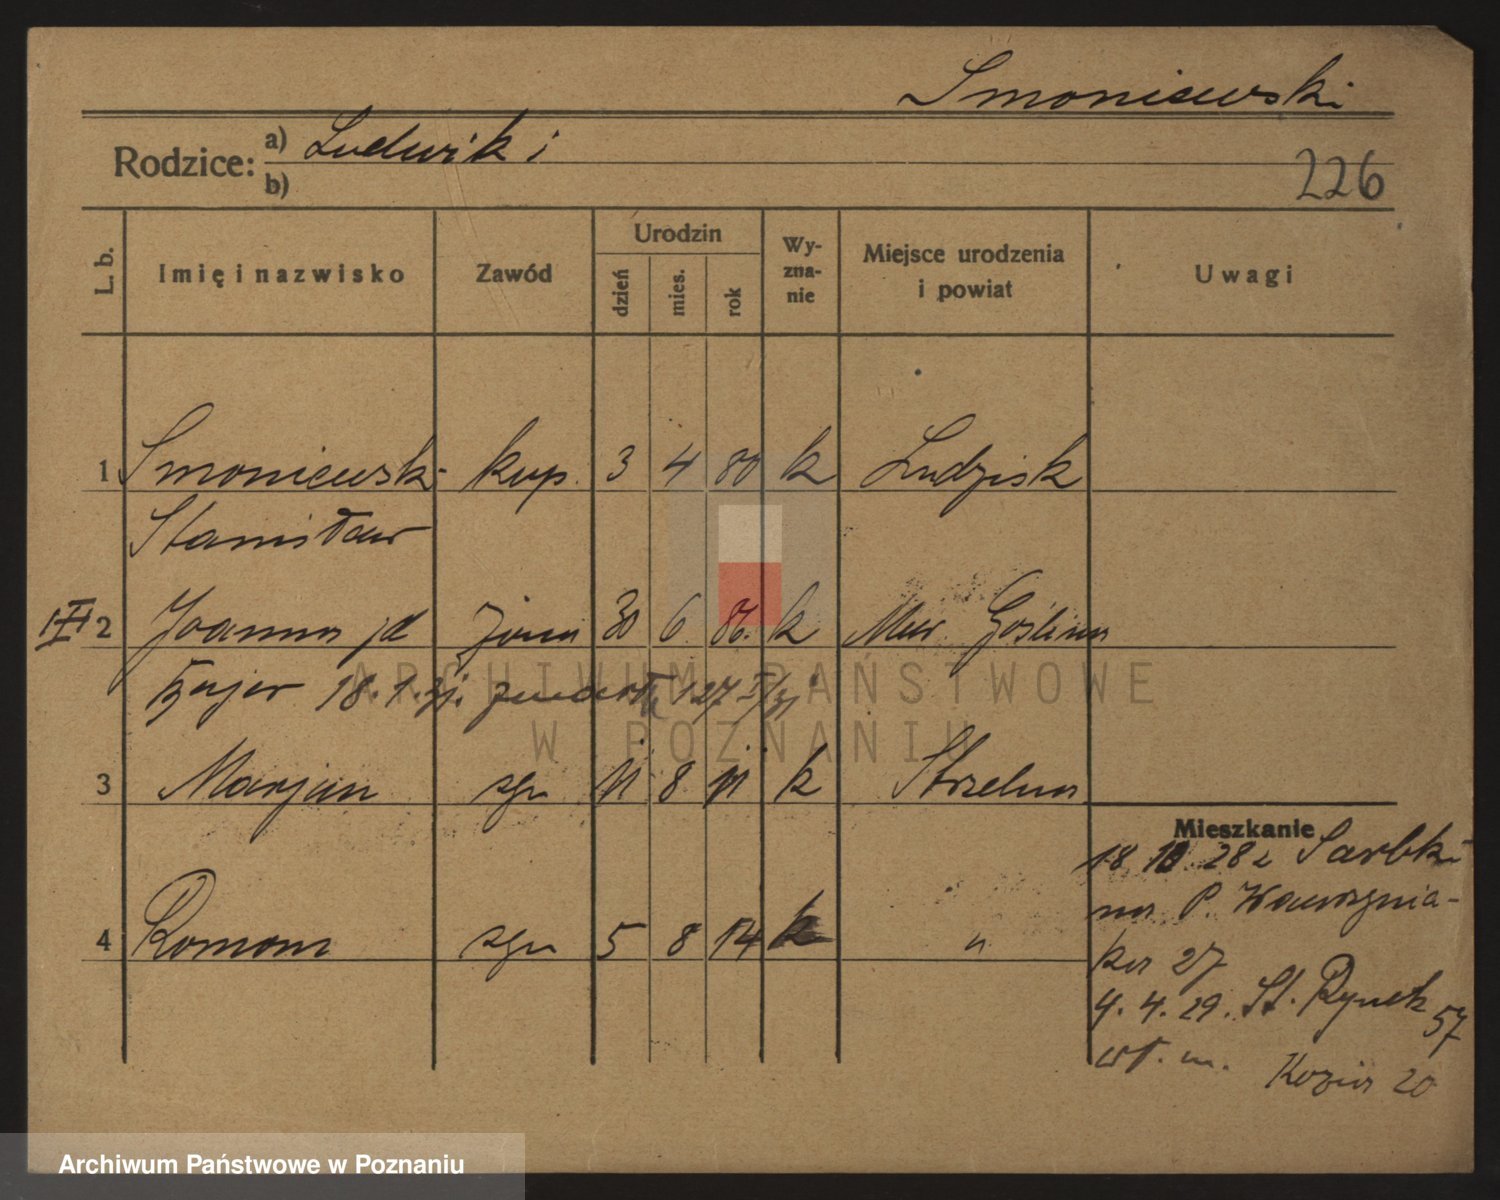 Smoniewski
Rodzice: a) Ludwik i
b)
226
L. b.
Imię i nazwisko
Zawód
Urodzin
dzień
mies.
rok
Wy-
zna-
nie
Miejsce urodzenia
i powiat
Uwagi
1 Smoniewski kup. 3 4 80 k Ludzisk
Stanisław
2 Joanna żona 30 6 86. k Mur Goślina
18. 1. 31.
3 Marjan syn 11 8 11 k Strzelno
4 Roman syn 5 8 14 k "
Mieszkanie
18 10 28 z Sarbki
na P. Wawrzynia-
ka 27
9. 4. 29. St. Rynek 57
wł. m. Kozia 20
ARCHIWUM PAŃSTWOWE
W POZNANIU
Archiwum Państwowe w Poznaniu